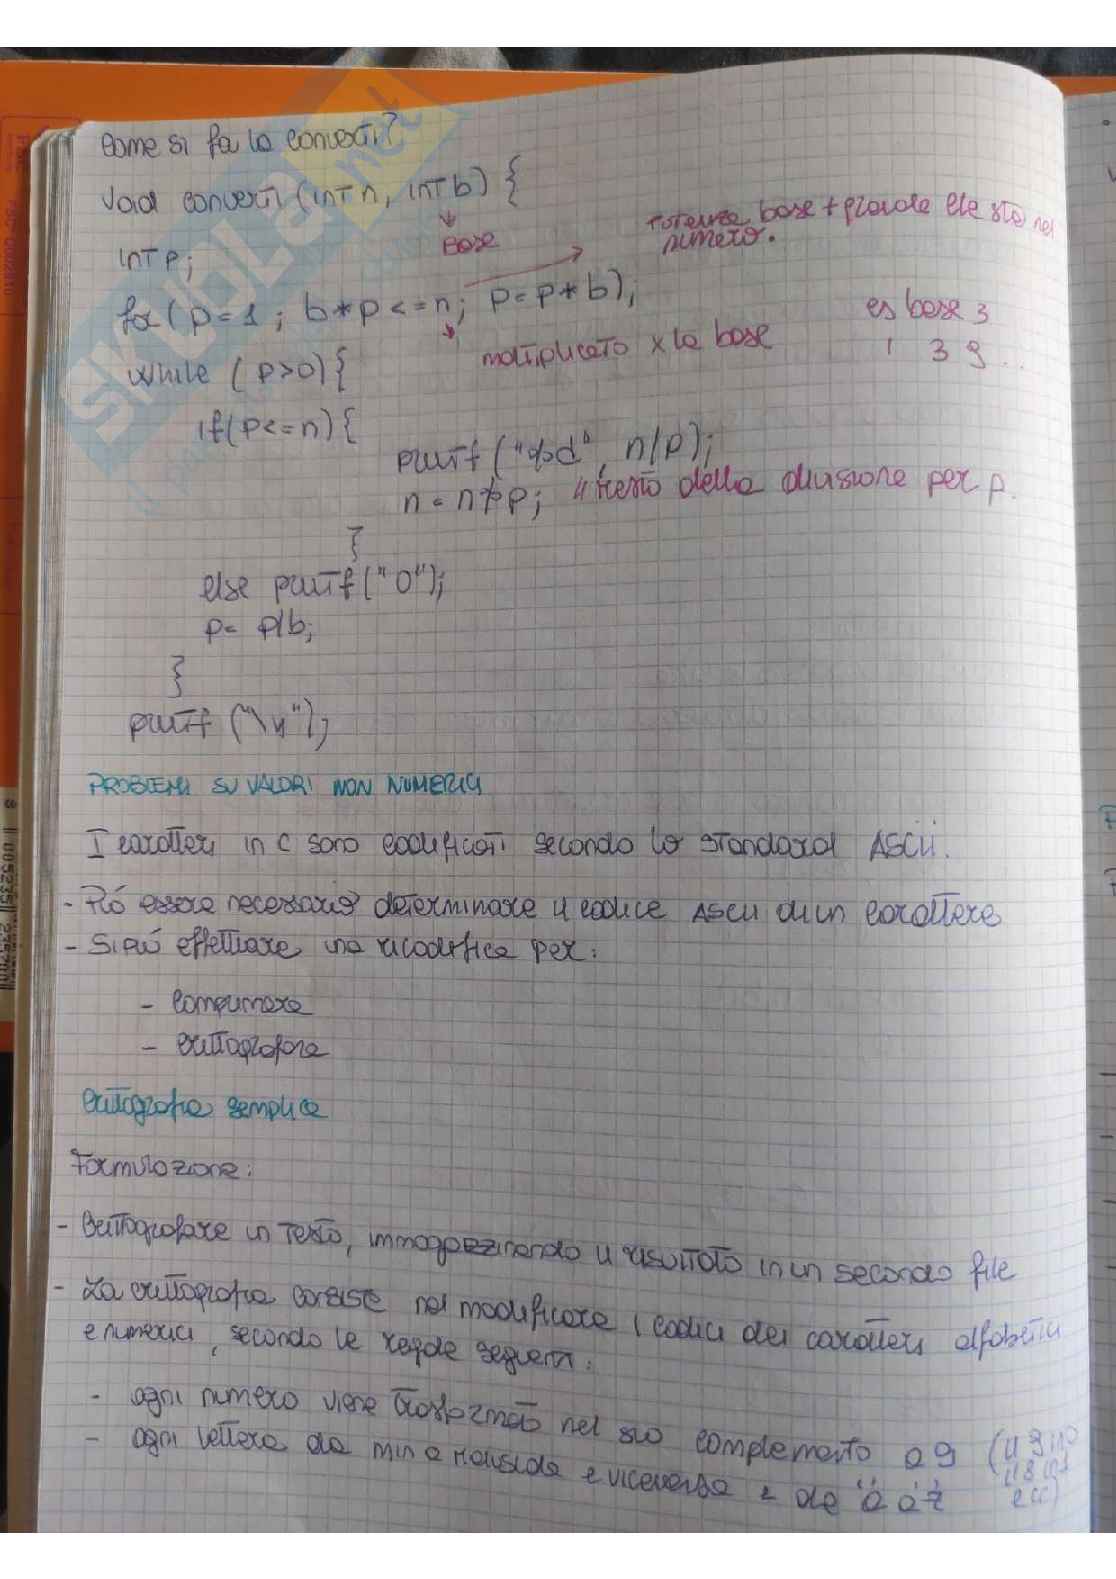 Come si fa la converti?
void converti (int n, int b) {
Base
int p;
potenza base + grande che sta nel
numero.
for (p=1; b*p<=n; p=p*b);
moltiplicato x la base
es base 3
1 3 9 ..
while (p>0) {
if (p<=n) {
printf ("%d", n/p);
n = n%p; // resto della divisione per p.
}
else printf ("0");
p = p/b;
}
printf ("\n");
PROBLEMI SU VALORI NON NUMERICI
I caratteri in C sono codificati secondo lo standard ASCII.
- Può essere necessario determinare il codice ASCII di un carattere
- Si può effettuare una ricodifica per:
- comprimere
- crittografare
Crittografia semplice
Formulazione:
- Crittografare un testo, immagazzinando il risultato in un secondo file
- La crittografia consiste nel modificare i codici dei caratteri alfabetici
e numerici, secondo le regole seguenti:
- ogni numero viene trasformato nel suo complemento a 9 (il 9 in 0
il 8 in 1
ecc)
- ogni lettera da min a maiuscola e viceversa e da "a" a "z"
SKUOLA.net